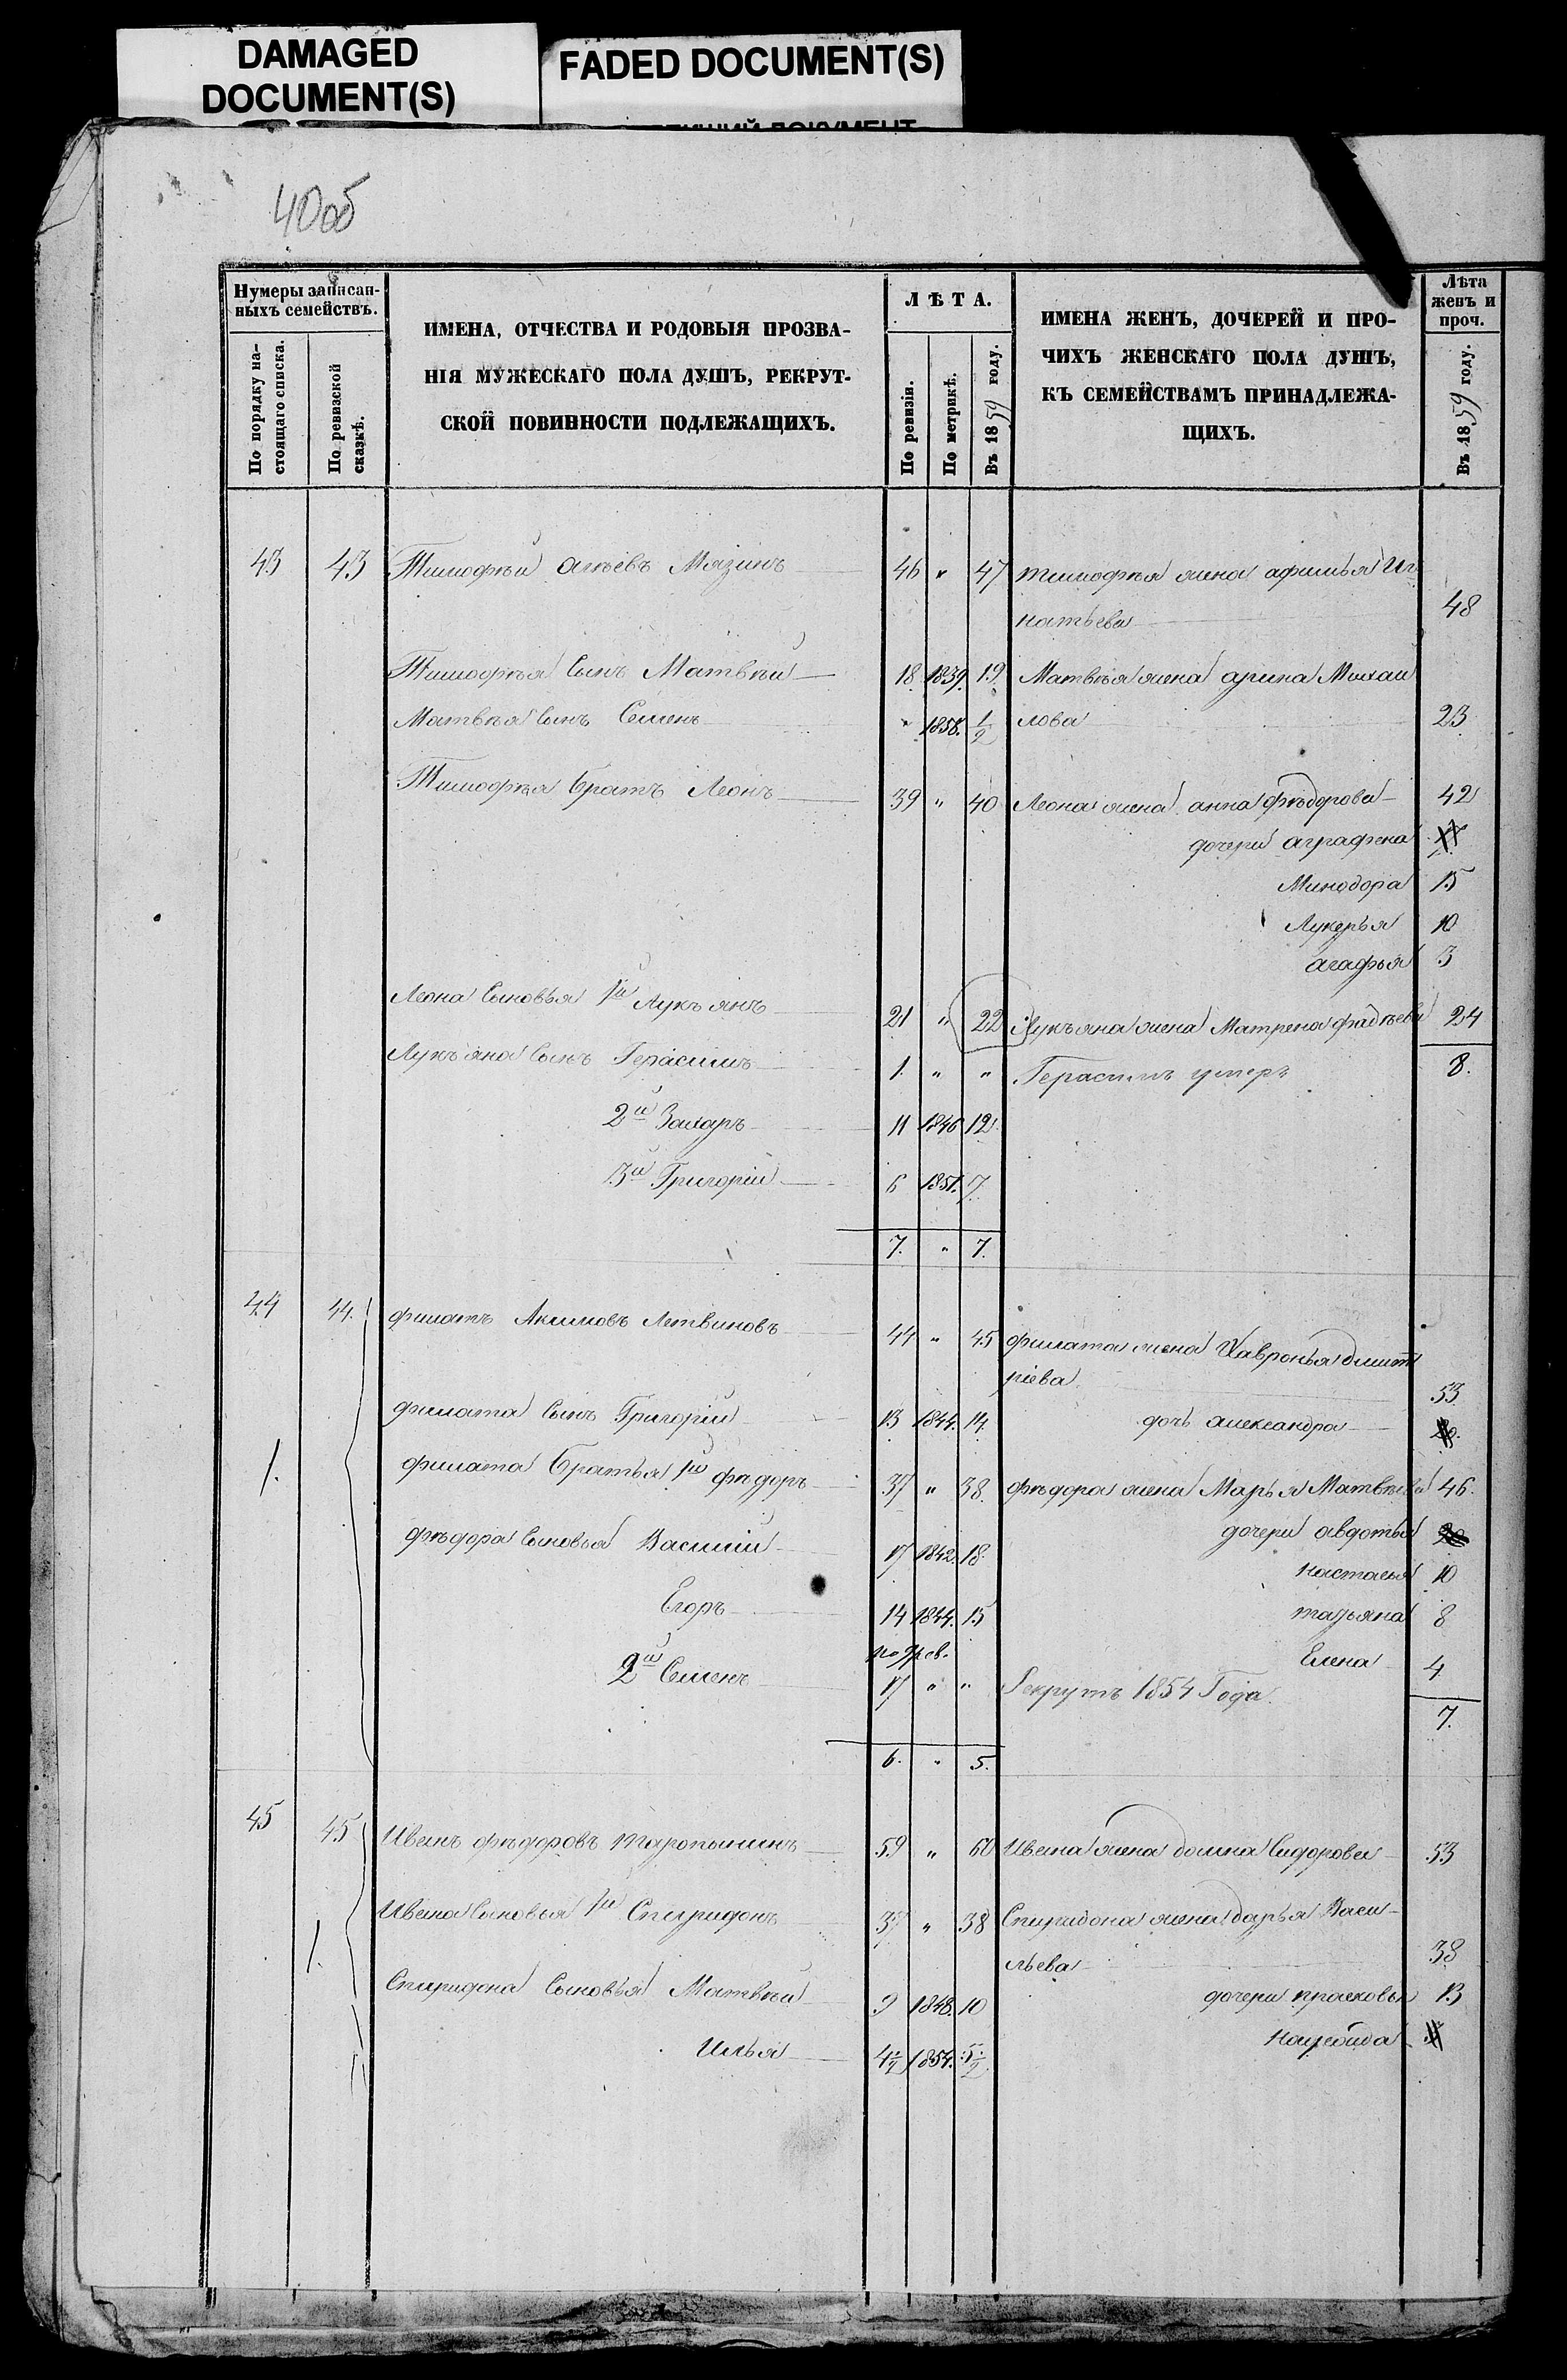 DAMAGED
DOCUMENT(S)
FADED DOCUMENT(S)
40об
Нумеры записан-
ныхъ семействъ.
По порядку на-
стоящаго списка.
По ревизской
сказкѣ.
ИМЕНА, ОТЧЕСТВА И РОДОВЫЯ ПРОЗВА-
НІЯ МУЖЕСКАГО ПОЛА ДУШЪ, РЕКРУТ-
СКОЙ ПОВИННОСТИ ПОДЛЕЖАЩИХЪ.
ЛѢТА.
По ревизіи.
По метрикѣ.
Въ 1859 году.
ИМЕНА ЖЕНЪ, ДОЧЕРЕЙ И ПРО-
ЧИХЪ ЖЕНСКАГО ПОЛА ДУШЪ,
КЪ СЕМЕЙСТВАМЪ ПРИНАДЛЕЖА-
ЩИХЪ.
Лѣта
женъ и
проч.
Въ 1859 году.
43 43 Тимофѣй Мязинъ 46 " 47 тимофѣя жена афимья Иг
натьева 48
Тимофѣя Сынъ Матвѣй 18. 1839. 19. Матвѣя жена арина Михаи
Матвѣя Сынъ Семенъ " 1858. 1/2 лова 23
Тимофѣя братъ Леонъ 39 " 40 Леона жена анна фѣдорова 42
дочери аграфена
Минодора 15
Лукерья 10
агафья 3
Леона Сыновья 1й Лукъянъ 21 " 22 Лукъяна жена Матрена фадѣева 24
Лукъяна Сынъ Герасимъ 1. " " Герасимъ умеръ 8.
2й Захаръ 11 1846 12.
3й Григорій 6 1851. 7.
7. " 7.
44 44. филатъ Акимовъ Летвиновъ 44 " 45 филата жена Хавронья дмит
ріева 53
филата Сынъ Григорій 13 1844. 14. дочь александра
1. филата братья 1й фѣдоръ 37 " 38. фѣдора жена Марья Матвѣева 46.
дочери авдотья
фѣдора Сыновья Василій 17 1842. 18. настасья 10
Егоръ 14 1844. 15 татьяна 8
Елена 4
2й Семенъ 17 " " Рекрутъ 1854 Года.
7.
6. " 5.
45 45 Иванъ фѣдоровъ таропынинъ 59 " 60 Ивана жена домна Сидорова 53
1. Ивана Сыновья 1й Спиридонъ 37 " 38 Спиридона жена дарья Васи-
льева 38
Спиридона Сыновья Матвѣй 9 1848. 10 дочери прасковья 13
Илья 4 1/2 1854. 5 1/2